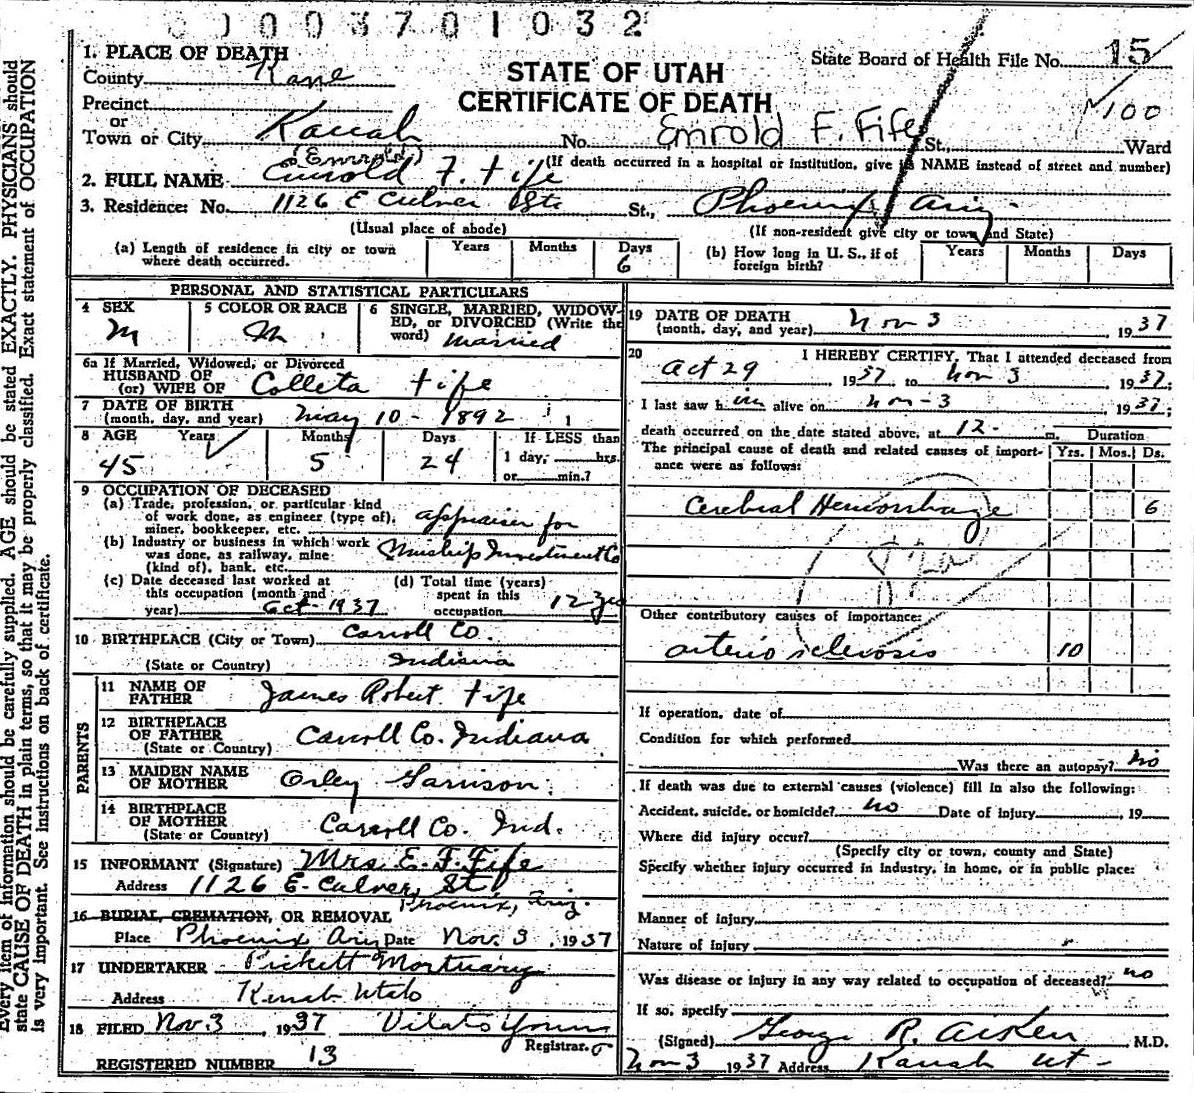 0003701032
1. PLACE OF DEATH
County Kane
STATE OF UTAH
CERTIFICATE OF DEATH
State Board of Health File No. 15
100
Precinct
or
Town or City Kanab No. Emrold F. Fife St., Ward
(If death occurred in a hospital or institution, give its NAME instead of street and number)
(Emrold)
2. FULL NAME Emrold F. Fife
3. Residence: No. 1126 E Culver St., Phoenix Ariz.
(Usual place of abode) (If non-resident give city or town and State)
(a) Length of residence in city or town where death occurred. Years Months Days 6
(b) How long in U. S., if of foreign birth? Years Months Days
PERSONAL AND STATISTICAL PARTICULARS
4 SEX M
5 COLOR OR RACE
6 SINGLE, MARRIED, WIDOWED, or DIVORCED (Write the word) Married
6a If Married, Widowed, or Divorced
HUSBAND OF
(or) WIFE OF Colleta Fife
7 DATE OF BIRTH
(month, day, and year) May 10 - 1892
8 AGE Years Months Days If LESS than
45 5 24 1 day, hrs.
or min.?
9 OCCUPATION OF DECEASED
(a) Trade, profession, or particular kind
of work done, as engineer (type of),
miner, bookkeeper, etc. appraiser for
(b) Industry or business in which work
was done, as railway, mine
(kind of), bank, etc. Investment Co
(c) Date deceased last worked at
this occupation (month and
year) Oct - 1937
(d) Total time (years)
spent in this
occupation 12
10 BIRTHPLACE (City or Town) Carroll Co.
(State or Country) Indiana
PARENTS
11 NAME OF
FATHER James Robert Fife
12 BIRTHPLACE
OF FATHER
(State or Country) Carroll Co. Indiana
13 MAIDEN NAME
OF MOTHER Orley Garrison
14 BIRTHPLACE
OF MOTHER
(State or Country) Carroll Co. Ind.
15 INFORMANT (Signature) Mrs E. F. Fife
Address 1126 E. Culver, St
Phoenix, Ariz.
16 BURIAL, CREMATION, OR REMOVAL
Place Phoenix Ariz Date Nov. 3, 1937
17 UNDERTAKER Pickett Mortuary
Address Kanab Utah
18 FILED Nov. 3, 1937 Young
Registrar.
REGISTERED NUMBER 13
19 DATE OF DEATH
(month, day, and year) Nov 3, 1937
20 I HEREBY CERTIFY, That I attended deceased from
Oct 29 1937 to Nov 3, 1937;
I last saw him alive on Nov - 3, 1937;
death occurred on the date stated above, at 12- m.
The principal cause of death and related causes of importance were as follows:
Duration
Yrs. Mos. Ds.
Cerebral Hemorrhage 6
Other contributory causes of importance:
arterio sclerosis 10
If operation, date of
Condition for which performed
Was there an autopsy? No
If death was due to external causes (violence) fill in also the following:
Accident, suicide, or homicide? no Date of injury , 19
Where did injury occur?
(Specify city or town, county and State)
Specify whether injury occurred in industry, in home, or in public place:
Manner of injury
Nature of injury
Was disease or injury in any way related to occupation of deceased? no
If so, specify
(Signed) George R. Aiken M.D.
Nov 3 1937 Address Kanab Ut -
Every item of information should be carefully supplied. AGE should be stated EXACTLY. PHYSICIANS should
state CAUSE OF DEATH in plain terms, so that it may be properly classified. Exact statement of OCCUPATION
is very important. See instructions on back of certificate.